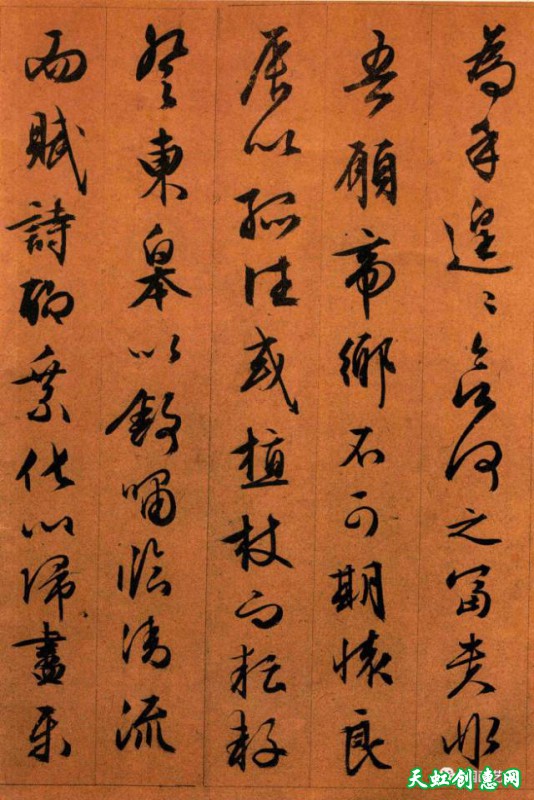 為乎遑〻欲何之富貴非
吾願帝鄉不可期懷良
辰以孤往或植杖而耘耔
登東皋以舒嘯臨清流
而賦詩聊乘化以歸盡樂
天虹创惠网